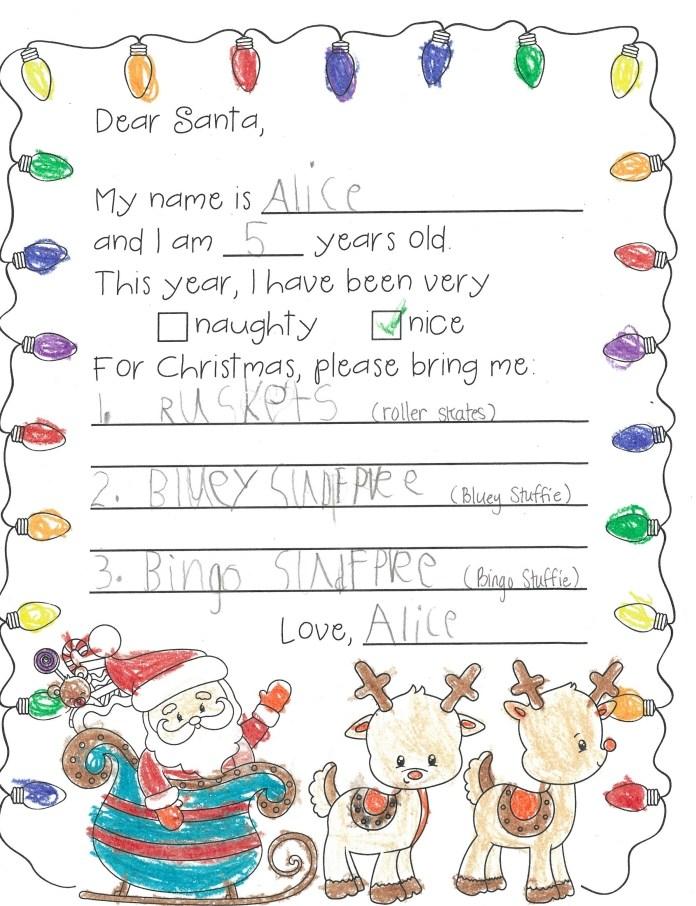 Dear Santa,
My name is Alice
and I am 5 years old.
This year, I have been very
naughty nice
For Christmas, please bring me:
1. RUSKETS (roller skates)
2. BlUEY SUNFPRE e (Bluey Stuffie)
3. Bingo SINdFPRe (Bingo Stuffie)
Love, Alice